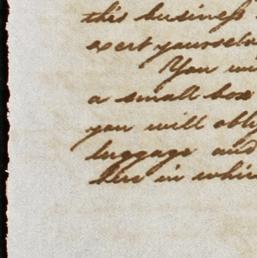 this business
exert yourselv
You wi
a small box
you will obly
luggage and
hers in whic